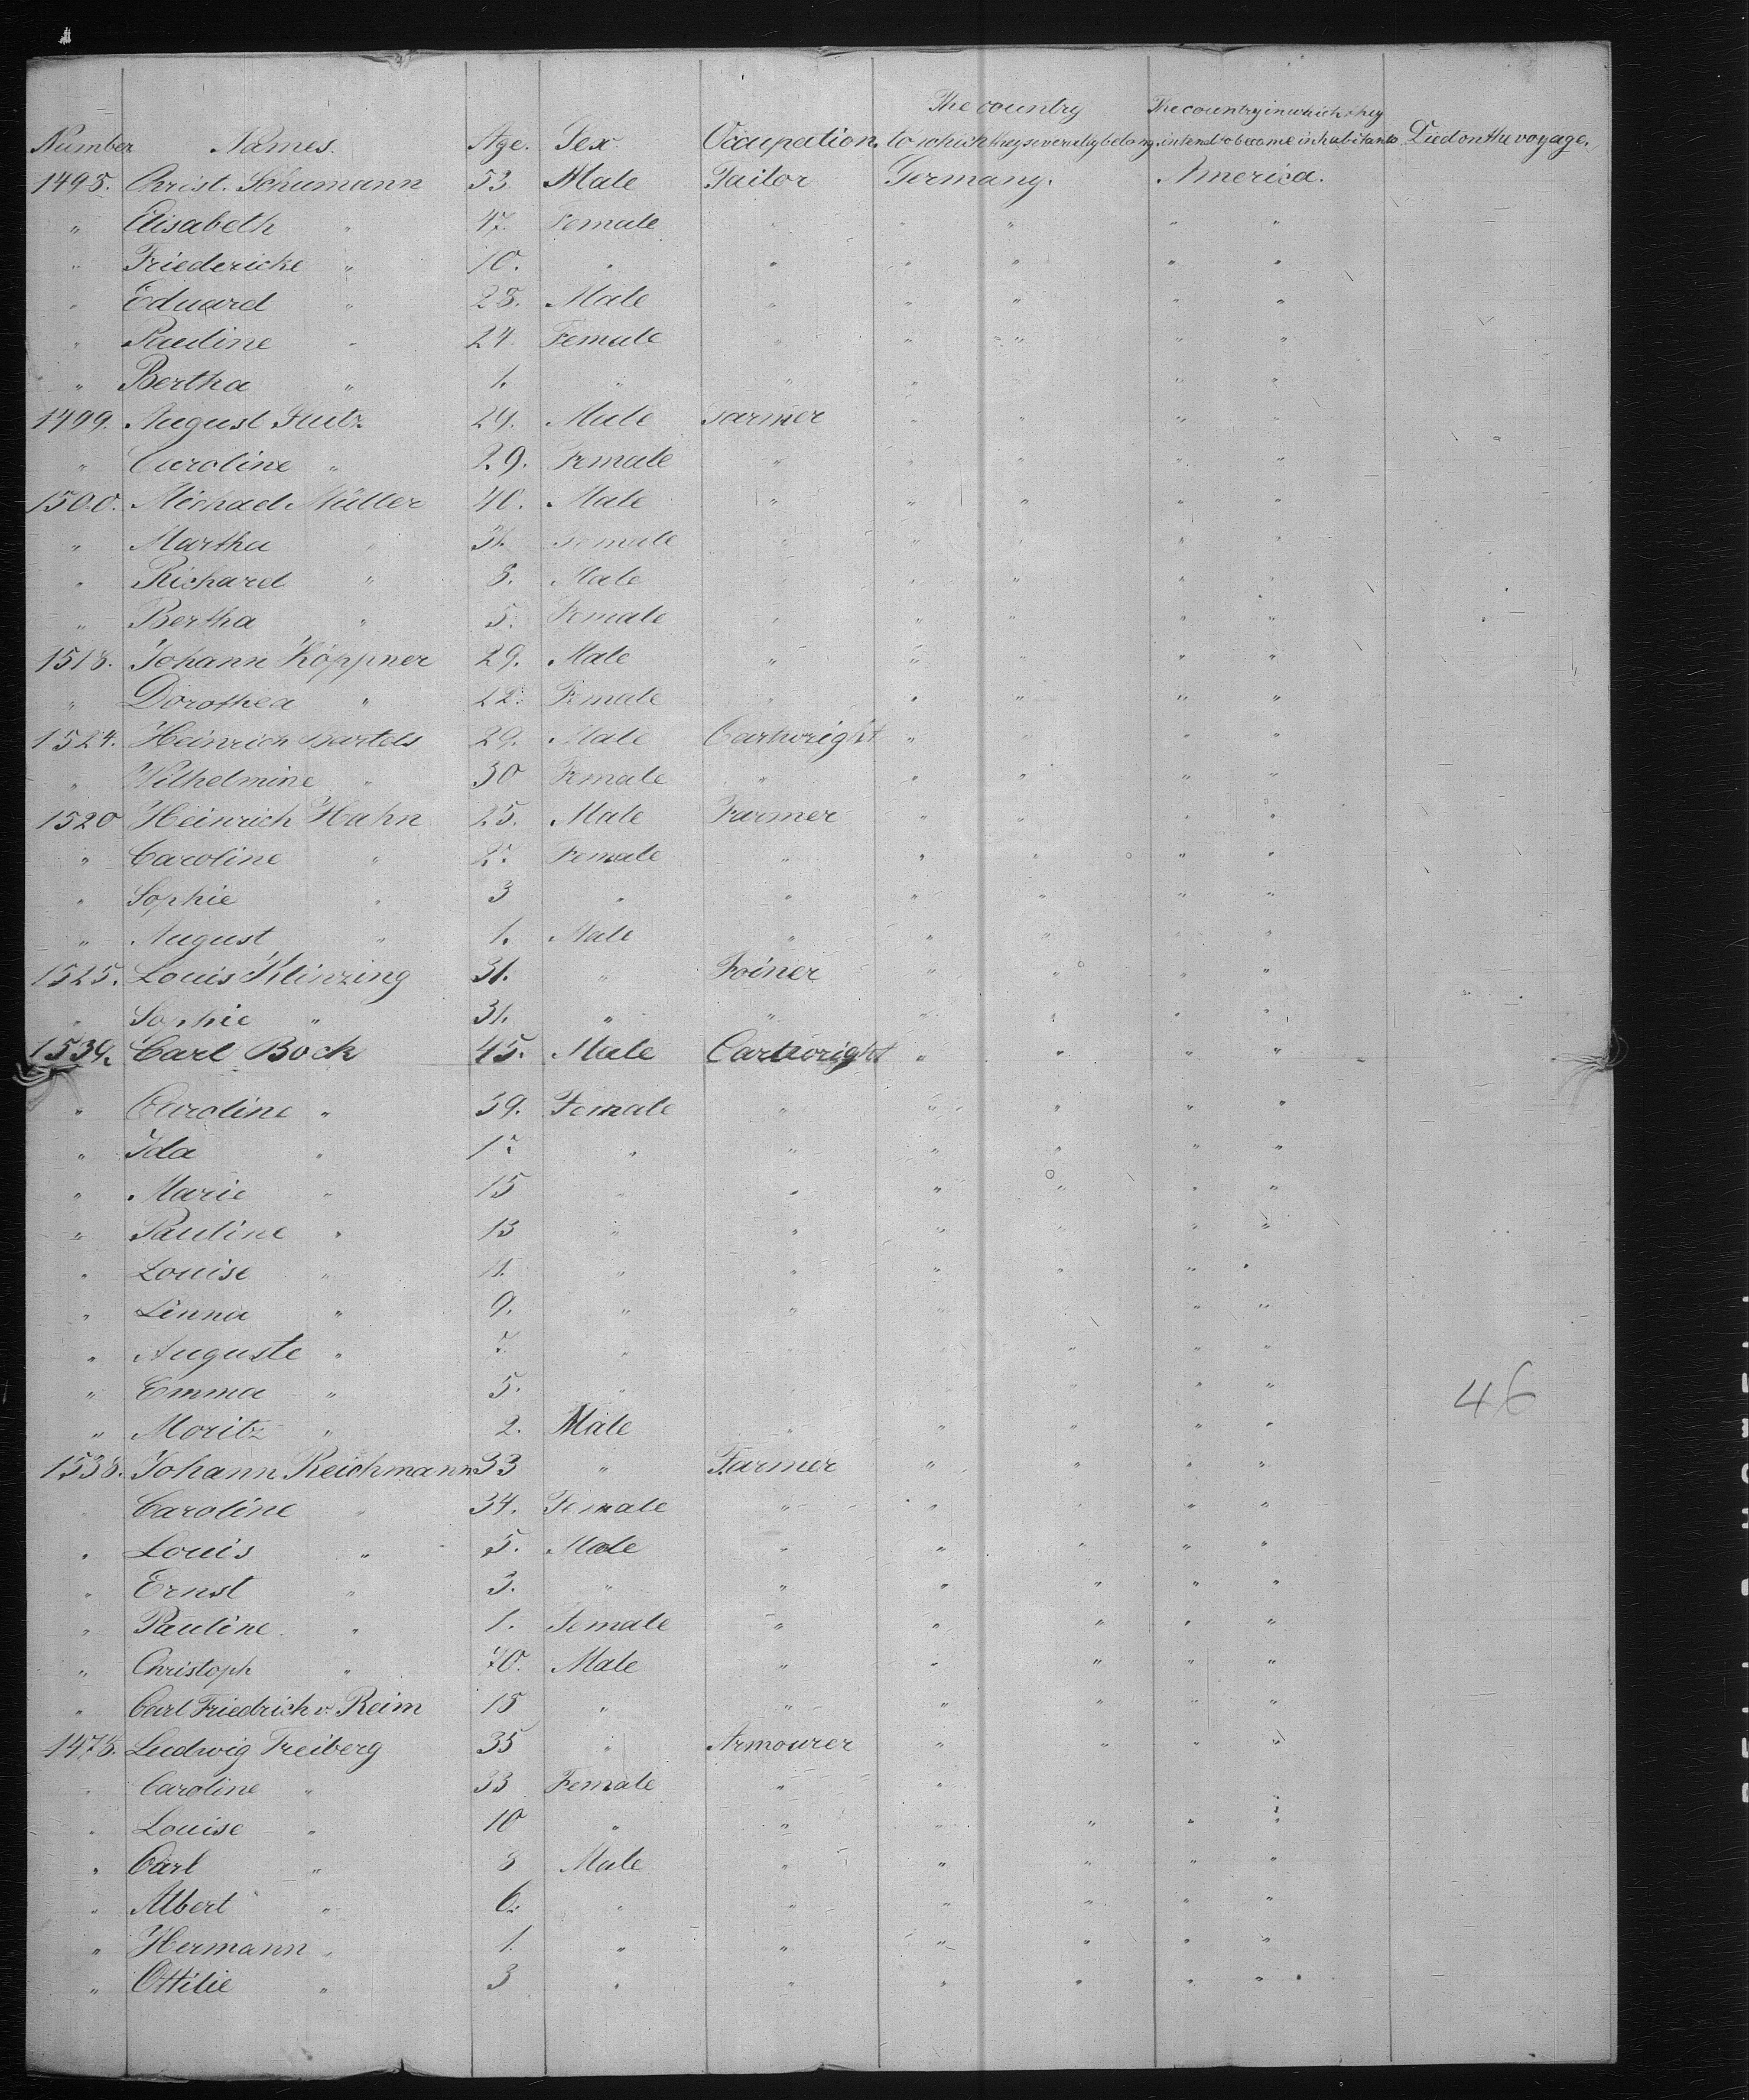 The country The country in which they
Number Names. Age. Sex. Occupation. to which they severally belong. intend to become inhabitants Died on the voyage.
1495. Christ. Schumann 53. Male Tailor Germany. America.
" Elisabeth " 47. Female " " " " "
" Friedericke " 10. " " " " " "
" Eduard " 28. Male " " " " "
" Pauline " 24. Female " " " " "
" Bertha " 1. " " " " "
1499. August 24. Male Farmer " " " "
" Caroline " 29. Female " " " " "
1500. Michael Müller 40. Male " " " " "
" Martha " 31. Female " " " " "
" Richard " 8. Male " " " " "
" Bertha " 5. Female " " " " "
1518. Johann Köppner 29. Male " " " "
" Dorothea " 22. Female " " " " "
1524. Heinrich Bartels 29. Male Cartwright " " " "
" Wilhelmine " 30 Female " " " " "
1520 Heinrich Hahn 25. Male Farmer " " " "
" Caroline " Female " " " " "
" Sophie " 3 " " " " " "
" August " 1. Male " " " " "
1525. Louis Klinzing 31. " Joiner " " " "
" Sophie " 31. " " " " " "
1539. Carl Bock 45. Male Cartwright " " " "
" Caroline " 39. Female " " " " "
" Ida " 17. " " " " " "
" Marie " 15 " " " " " "
" Pauline " 13 " " " " " "
" Louise " 11. " " " " " "
" Linna " 9. " " " " "
" Auguste " 7. " " " " " "
" Emma " 5. " " " " "
46
" Moritz " 2. Male " " " " "
1538. Johann Reichmann 33 " Farmer " " " "
" Caroline " 34. Female " " " " "
" Louis " 5. Male " " " " "
" Ernst " 3. " " " " " "
" Pauline. " 1. Female " " " " "
" Christoph " 70. Male " " " " "
" Carl Friedrich v. Reim 18 " " " " " "
1475. Ludwig Freiberg 35 " Armourer " " " "
" Caroline " 33 Female " "
" Louise " 10 " " " " " "
" Carl " 8 Male " " " " "
" Albert " 6. " " " " " "
" Hermann " 1. " " " " " "
" Ottilie " 3 " " " " " "